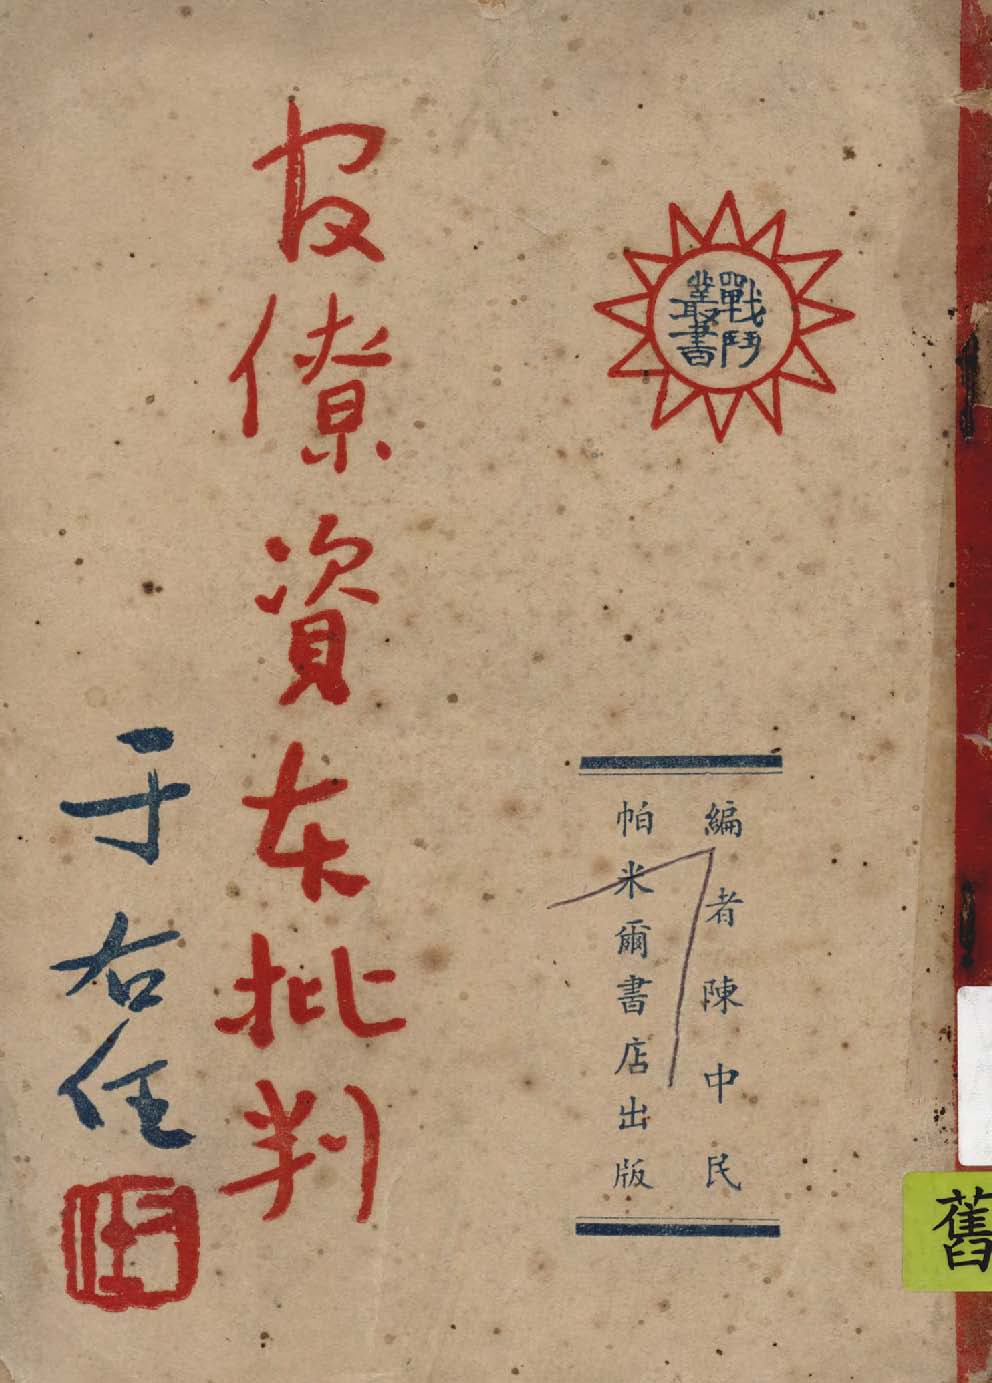 戰鬥
叢書
編者陳中民
帕米爾書店出版
官僚資本批判
于右任
舊